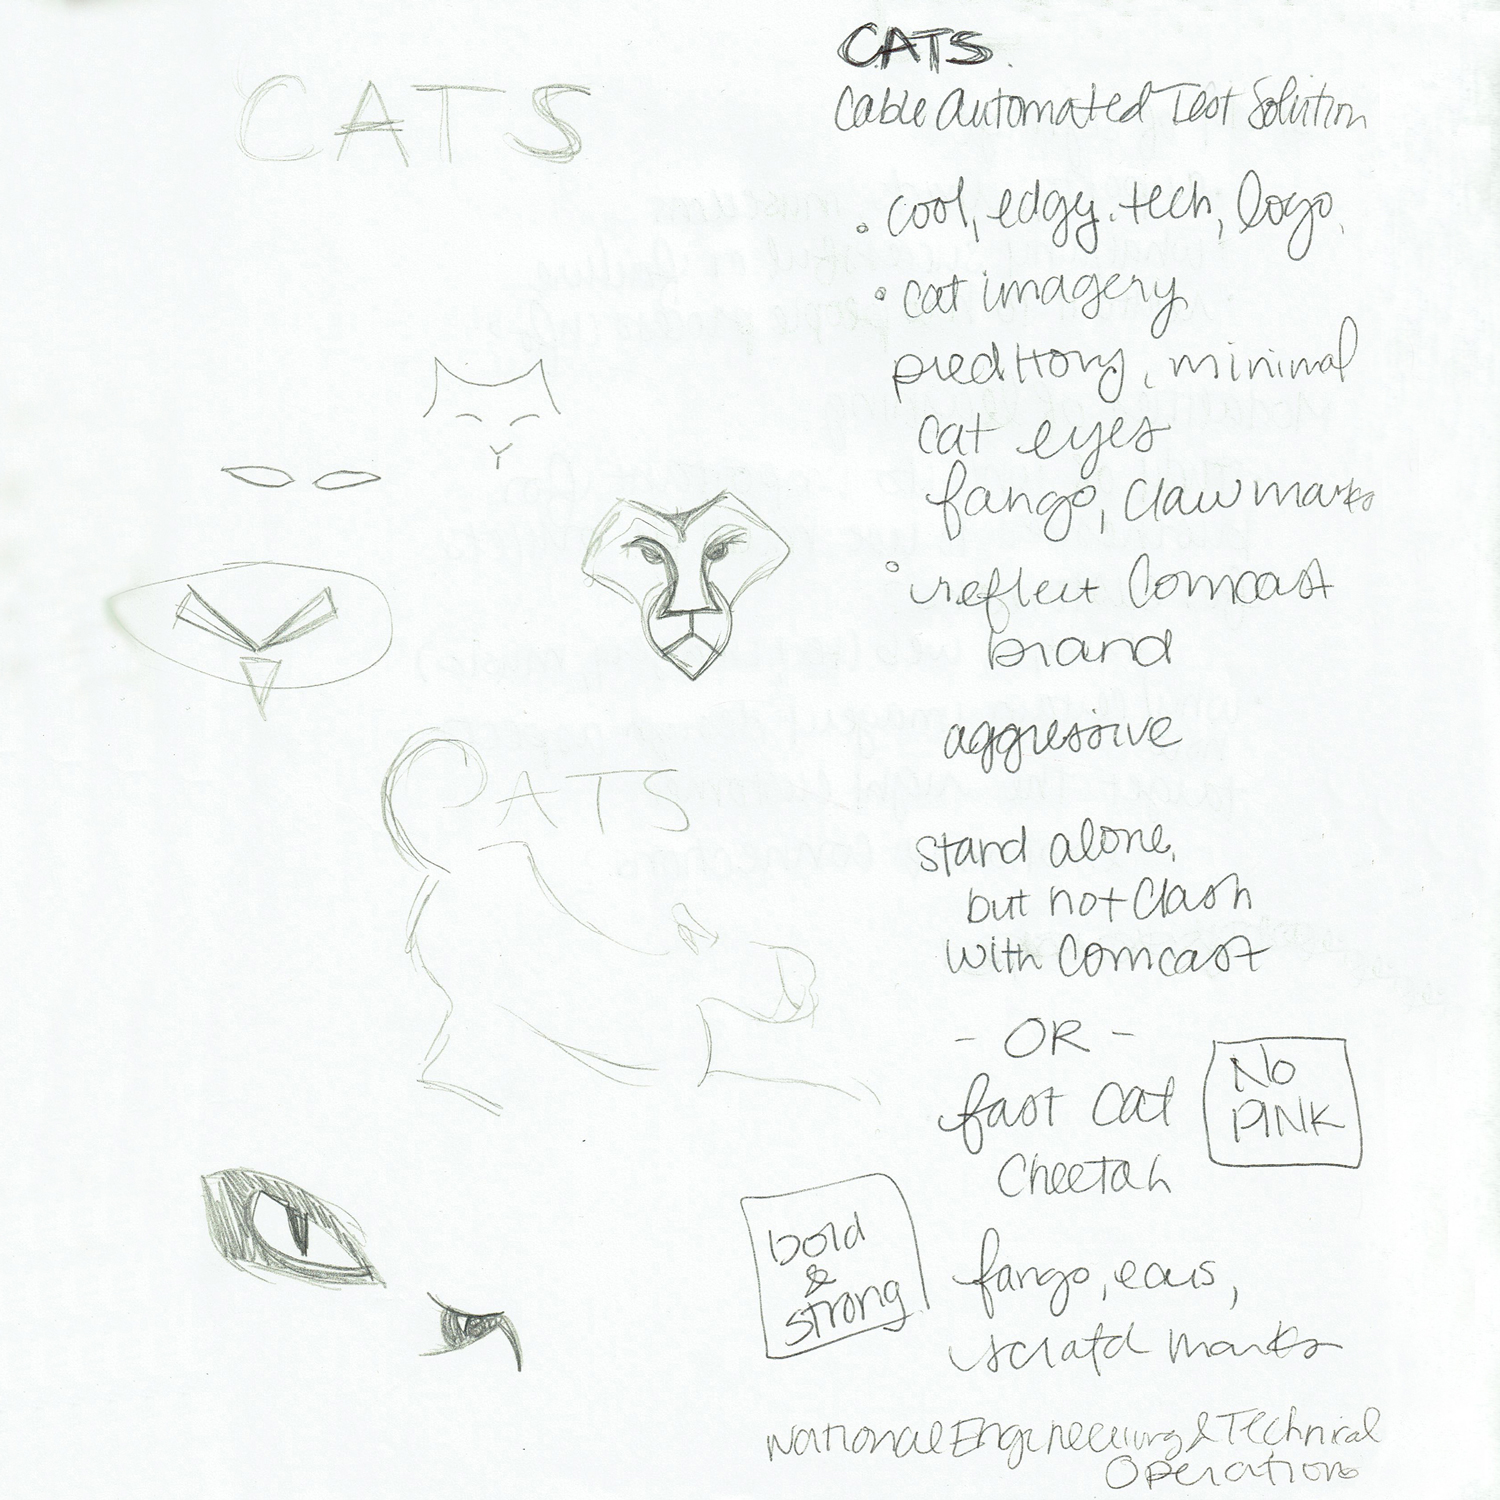 CATS
CATS
Cable Automated Test Solution
• cool, edgy, tech, logo,
• cat imagery
predttory, minimal
cat eyes
fangs, claw marks
• reflect Comcast
brand
aggressive
CATS
stand alone,
but not clash
with Comcast
- OR -
fast cat
Cheetah
No
PINK
bold
&
strong
fangs, ears,
scratch marks
National Engineering & Technical
Operations